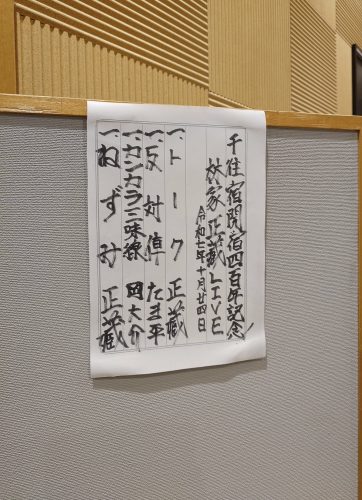 千住宿開宿四百年記念
林家正蔵LIVE
令和七年十月廿四日
一、トーク 正蔵
一、反対俥 たま平
一、カンカラ三味線 岡大介
一、ねずみ 正蔵